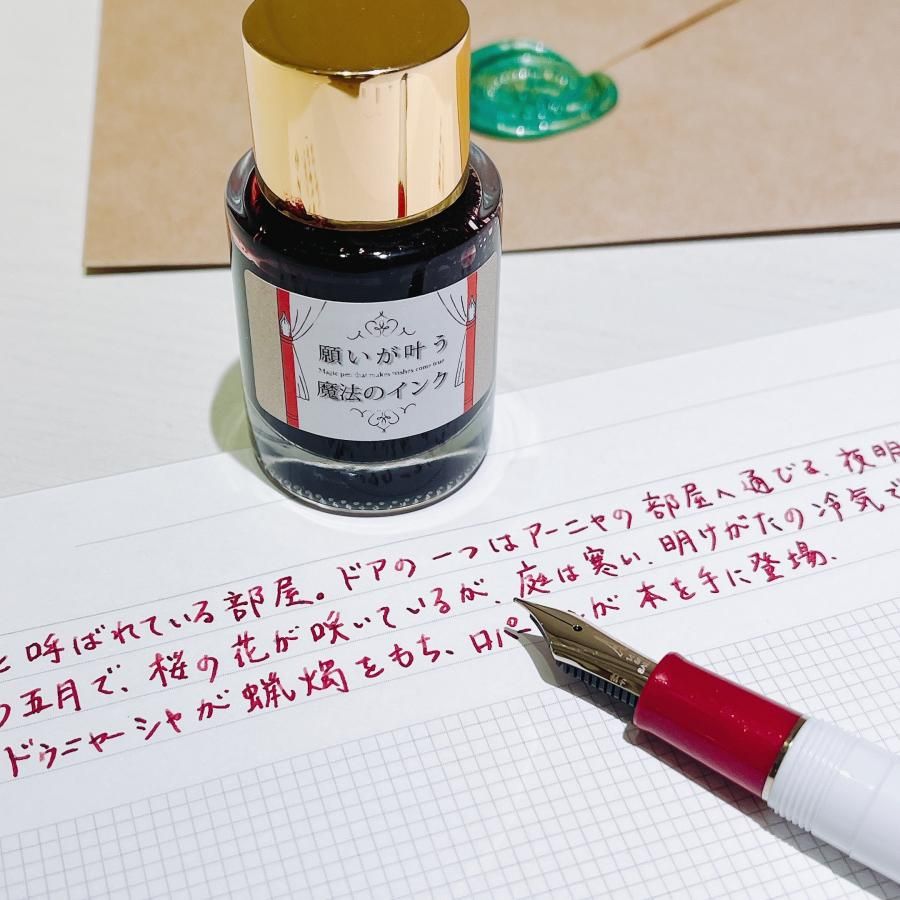 願いが叶う
Magic pen that makes wishes come true
魔法のインク
と呼ばれている部屋。ドアの一つはアーニャの部屋へ通じる、夜明
五月で、桜の花が咲いているが、庭は寒い、明けがたの冷気で
ドゥニャーシャが蝋燭をもち、ロパー が本を手に登場、
MF